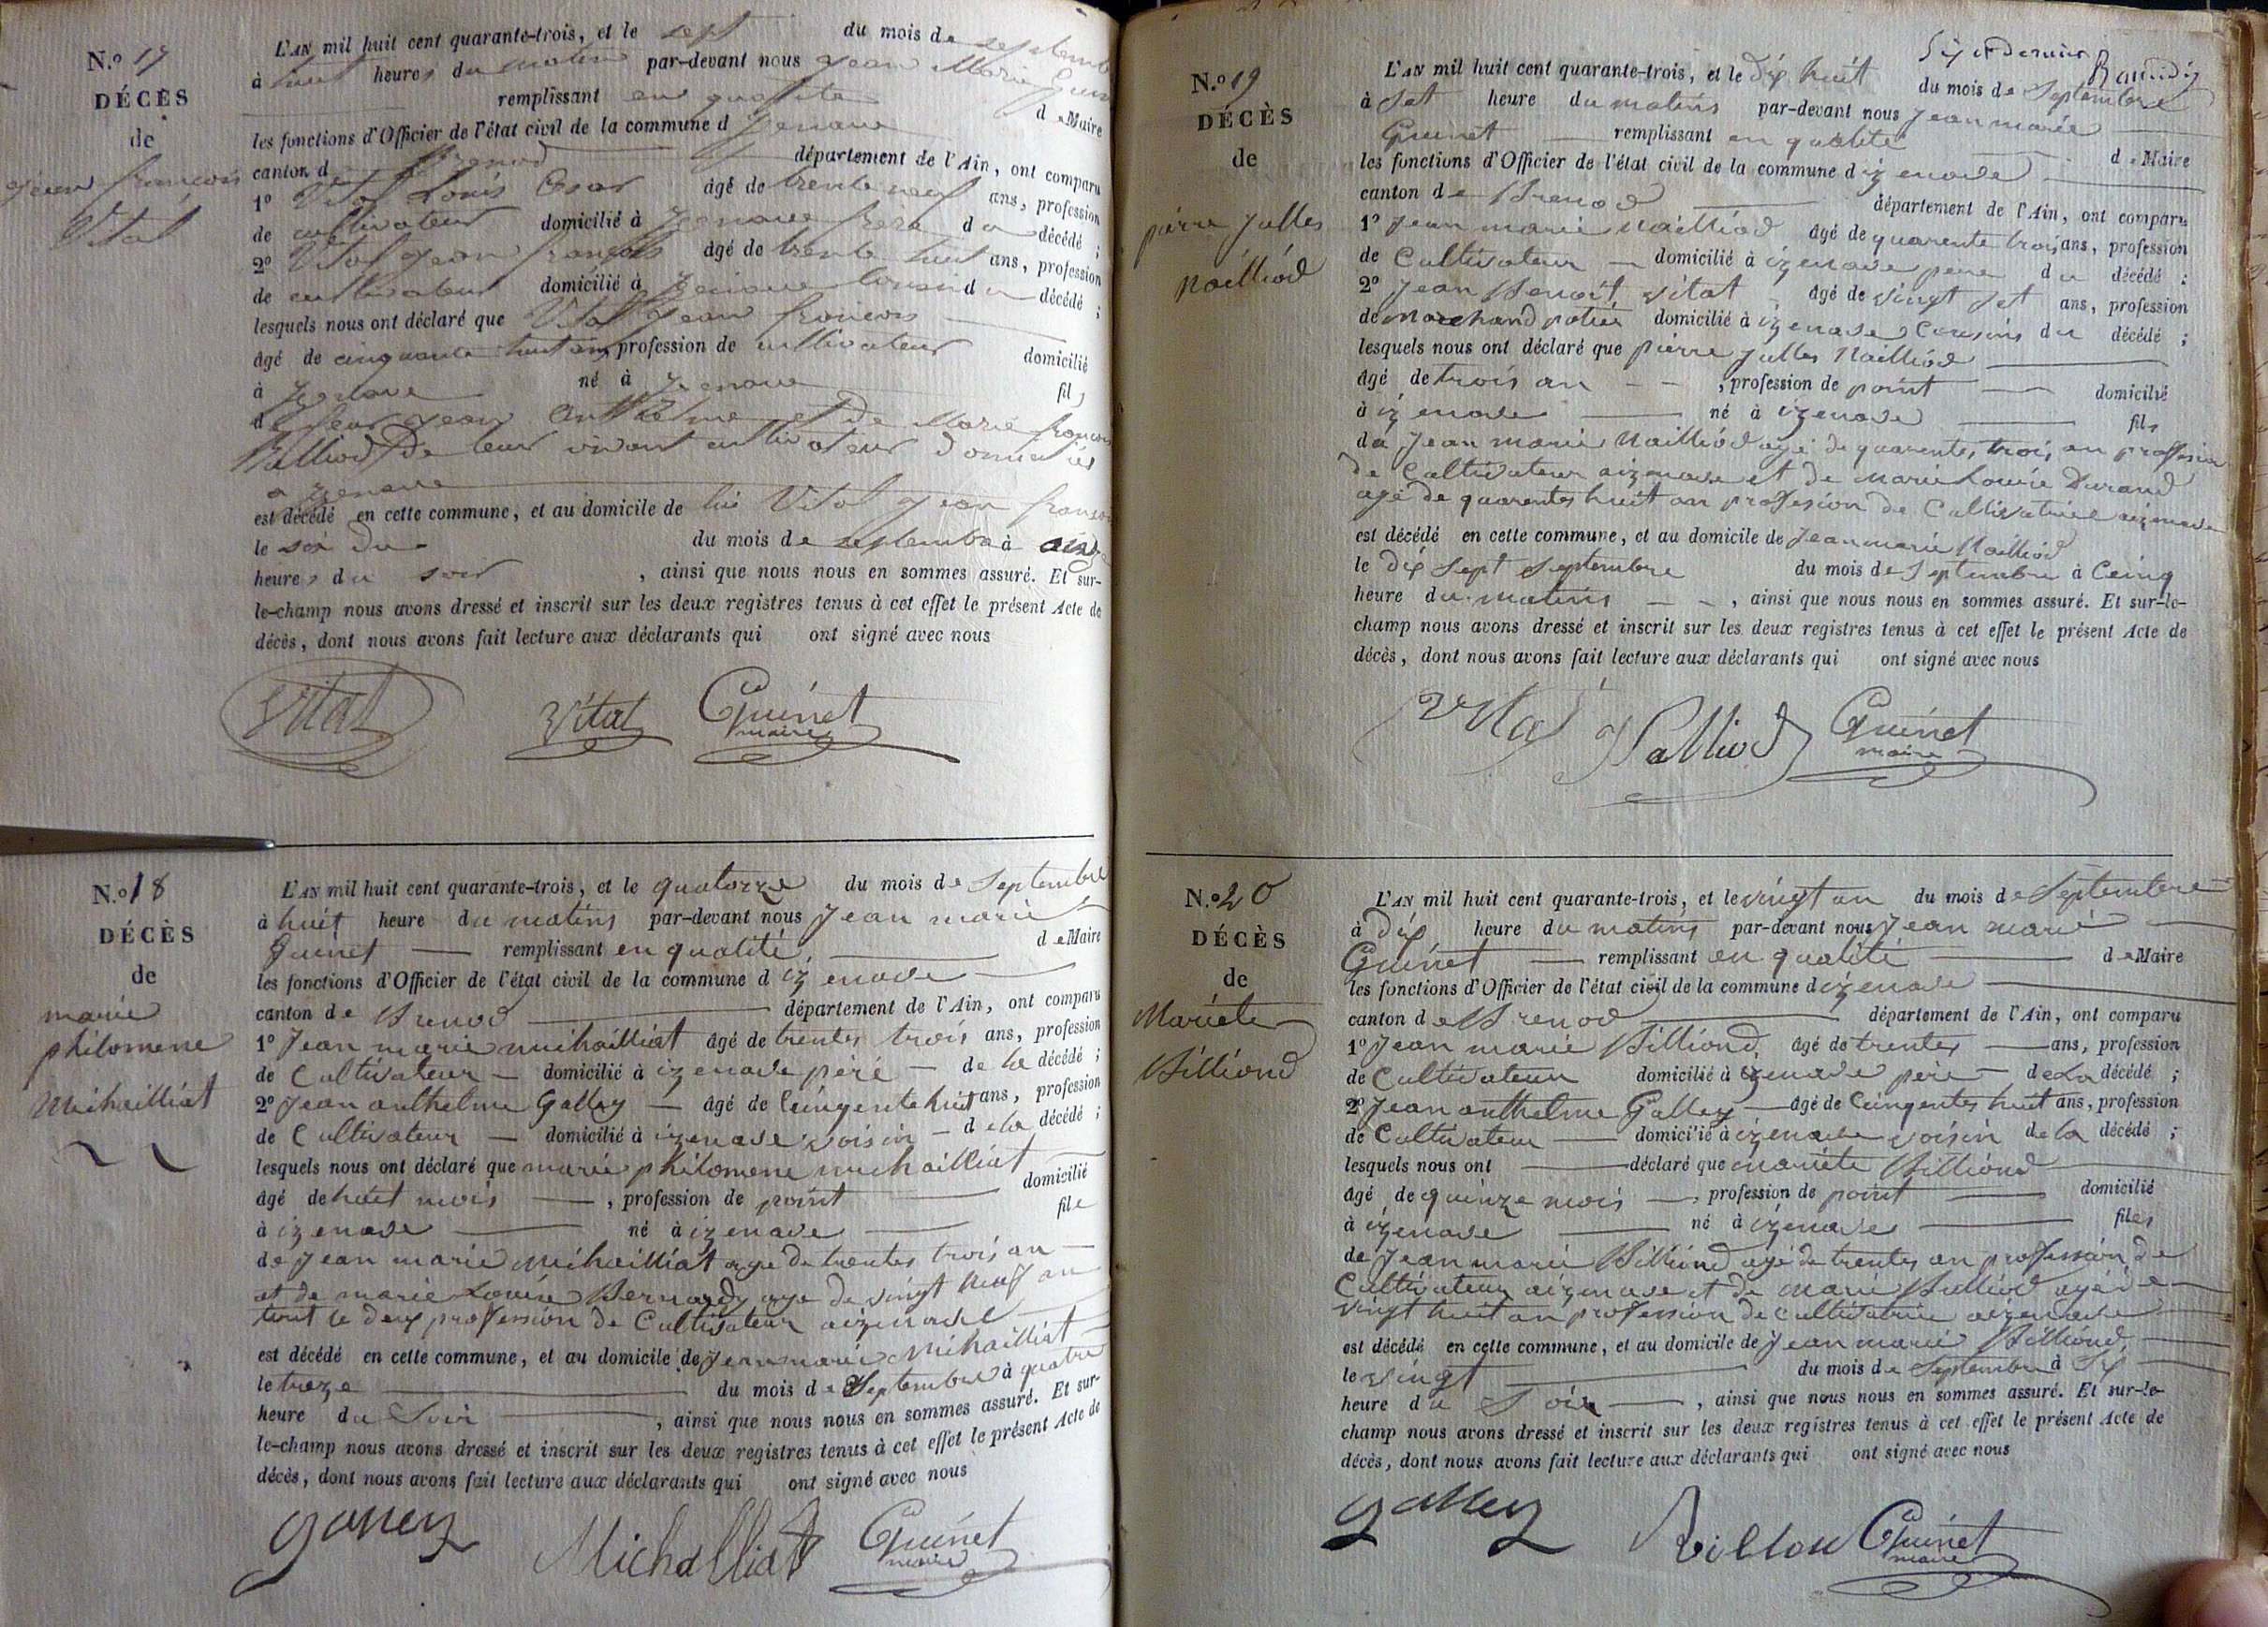 N.º 17
DÉCÈS
de
jean françois
Vital
L'AN mil huit cent quarante-trois, et le sept du mois de septembre
à huit heures du matin par-devant nous jean Marie Guinet
remplissant en qualité de Maire
les fonctions d'Officier de l'état civil de la commune d'izenave
canton de Brenod département de l'Ain, ont comparu
1º Vital Louis César âgé de trente neuf ans, profession
de cultivateur domicilié à izenave frère du décédé ;
2º Vital jean françois âgé de trente huit ans, profession
de cultivateur domicilié à izenave cousin du décédé ;
lesquels nous ont déclaré que Vital jean françois
âgé de cinquante huit ans, profession de cultivateur domicilié
à izenave né à izenave fils
de feux jean anthelme et de Marie françoise
Balliod de leur vivant cultivateur domiciliés
a izenave
est décédé en cette commune, et au domicile de lui Vital jean françois
le six du du mois de septembre à onze
heures du soir , ainsi que nous nous en sommes assuré. Et sur-
le-champ nous avons dressé et inscrit sur les deux registres tenus à cet effet le présent Acte de
décès, dont nous avons fait lecture aux déclarants qui ont signé avec nous
Vital Vital Guinet
maire
N.º 18
DÉCÈS
de
marie
philomene
Michailliat
L'AN mil huit cent quarante-trois, et le quatorze du mois de Septembre
à huit heure du matins par-devant nous Jean marie
Guinet remplissant en qualité de Maire
les fonctions d'Officier de l'état civil de la commune d izenave
canton de Brenod département de l'Ain, ont comparu
1º Jean marie michailliat âgé de trentes trois ans, profession
de Cultivateur domicilié à izenave péré de la décédé ;
2º Jean anthelme Galley âgé de Ceingente huit ans, profession
de Cultivateur domicilié à izenave voisin de la décédé ;
lesquels nous ont déclaré que marie philomene michailliat
âgé de huit mois , profession de point domicilié
à izenave né à izenave file
de Jean marie Michailliat age de trentes trois an
et de marie Louise Bernardy age de vingt neuf an
tout le deux profession de Cultivateur aizenave
est décédé en cette commune, et au domicile de Jean marie Michailliat
le treze du mois de Septembre à quatre
heure du Soir , ainsi que nous nous en sommes assuré. Et sur-
le-champ nous avons dressé et inscrit sur les deux registres tenus à cet effet le présent Acte de
décès, dont nous avons fait lecture aux déclarants qui ont signé avec nous
galley Michalliat Guinet
maire
Six et dernier
N.º 19
DÉCÈS
de
pierre julles
Nailliod
L'AN mil huit cent quarante-trois, et le dix huit du mois de Septembre
à Set heure du matins par-devant nous Jean marie
Guinet remplissant en qualité de Maire
les fonctions d'Officier de l'état civil de la commune d izenave
canton de Brenod département de l'Ain, ont comparu
1º Jean marie Nailliod âgé de quarente trois ans, profession
de Cultivateur domicilié à izenave pere du décédé ;
2º Jean Benoit Vital âgé de vingt set ans, profession
de Marchand potier domicilié à izenave Cousins du décédé ;
lesquels nous ont déclaré que pierre julles Nailliod
âgé de trois an , profession de point domicilié
à izenave né à izenave fils
de Jean marie Nailliod age de quarentes trois an profession
de Cultivateur aizenave et de Marie Louise Durand
age de quarentes huit an profession de Cultivatrice aizenave
est décédé en cette commune, et au domicile de Jean marie Nailliod
le dix Sept Septembre du mois de Septembre à Ceinq
heure du matins , ainsi que nous nous en sommes assuré. Et sur-le-
champ nous avons dressé et inscrit sur les deux registres tenus à cet effet le présent Acte de
décès, dont nous avons fait lecture aux déclarants qui ont signé avec nous
Vital Nalliod Guinet
maire
N.º 20
DÉCÈS
de
Mariete
Billiond
L'AN mil huit cent quarante-trois, et le vingt un du mois de Septembre
à dix heure du matins par-devant nous Jean marie
Guinet remplissant en qualité de Maire
les fonctions d'Officier de l'état civil de la commune d izenave
canton de Brenod département de l'Ain, ont comparu
1º Jean marie Billiond âgé de trentes ans, profession
de Cultivateur domicilié à izenave père de la décédé ;
2º Jean anthelme Galley âgé de Ceingentes huit ans, profession
de Cultivateur domicilié à izenave voisin de la décédé ;
lesquels nous ont déclaré que mariete Billiond
âgé de quinze mois , profession de point domicilié
à izenave né à izenave files
de Jean marie Billiond agé de trentes an profession de
Cultivateur aizenave et de Marie Balliod agé de
vingt huit an profession de cultivatrice aizenave
est décédé en cette commune, et au domicile de Jean marie Billiond
le vingt du mois de Septembre à Six
heure du Soir , ainsi que nous nous en sommes assuré. Et sur-le-
champ nous avons dressé et inscrit sur les deux registres tenus à cet effet le présent Acte de
décès, dont nous avons fait lecture aux déclarants qui ont signé avec nous
galley Billou Guinet
maire